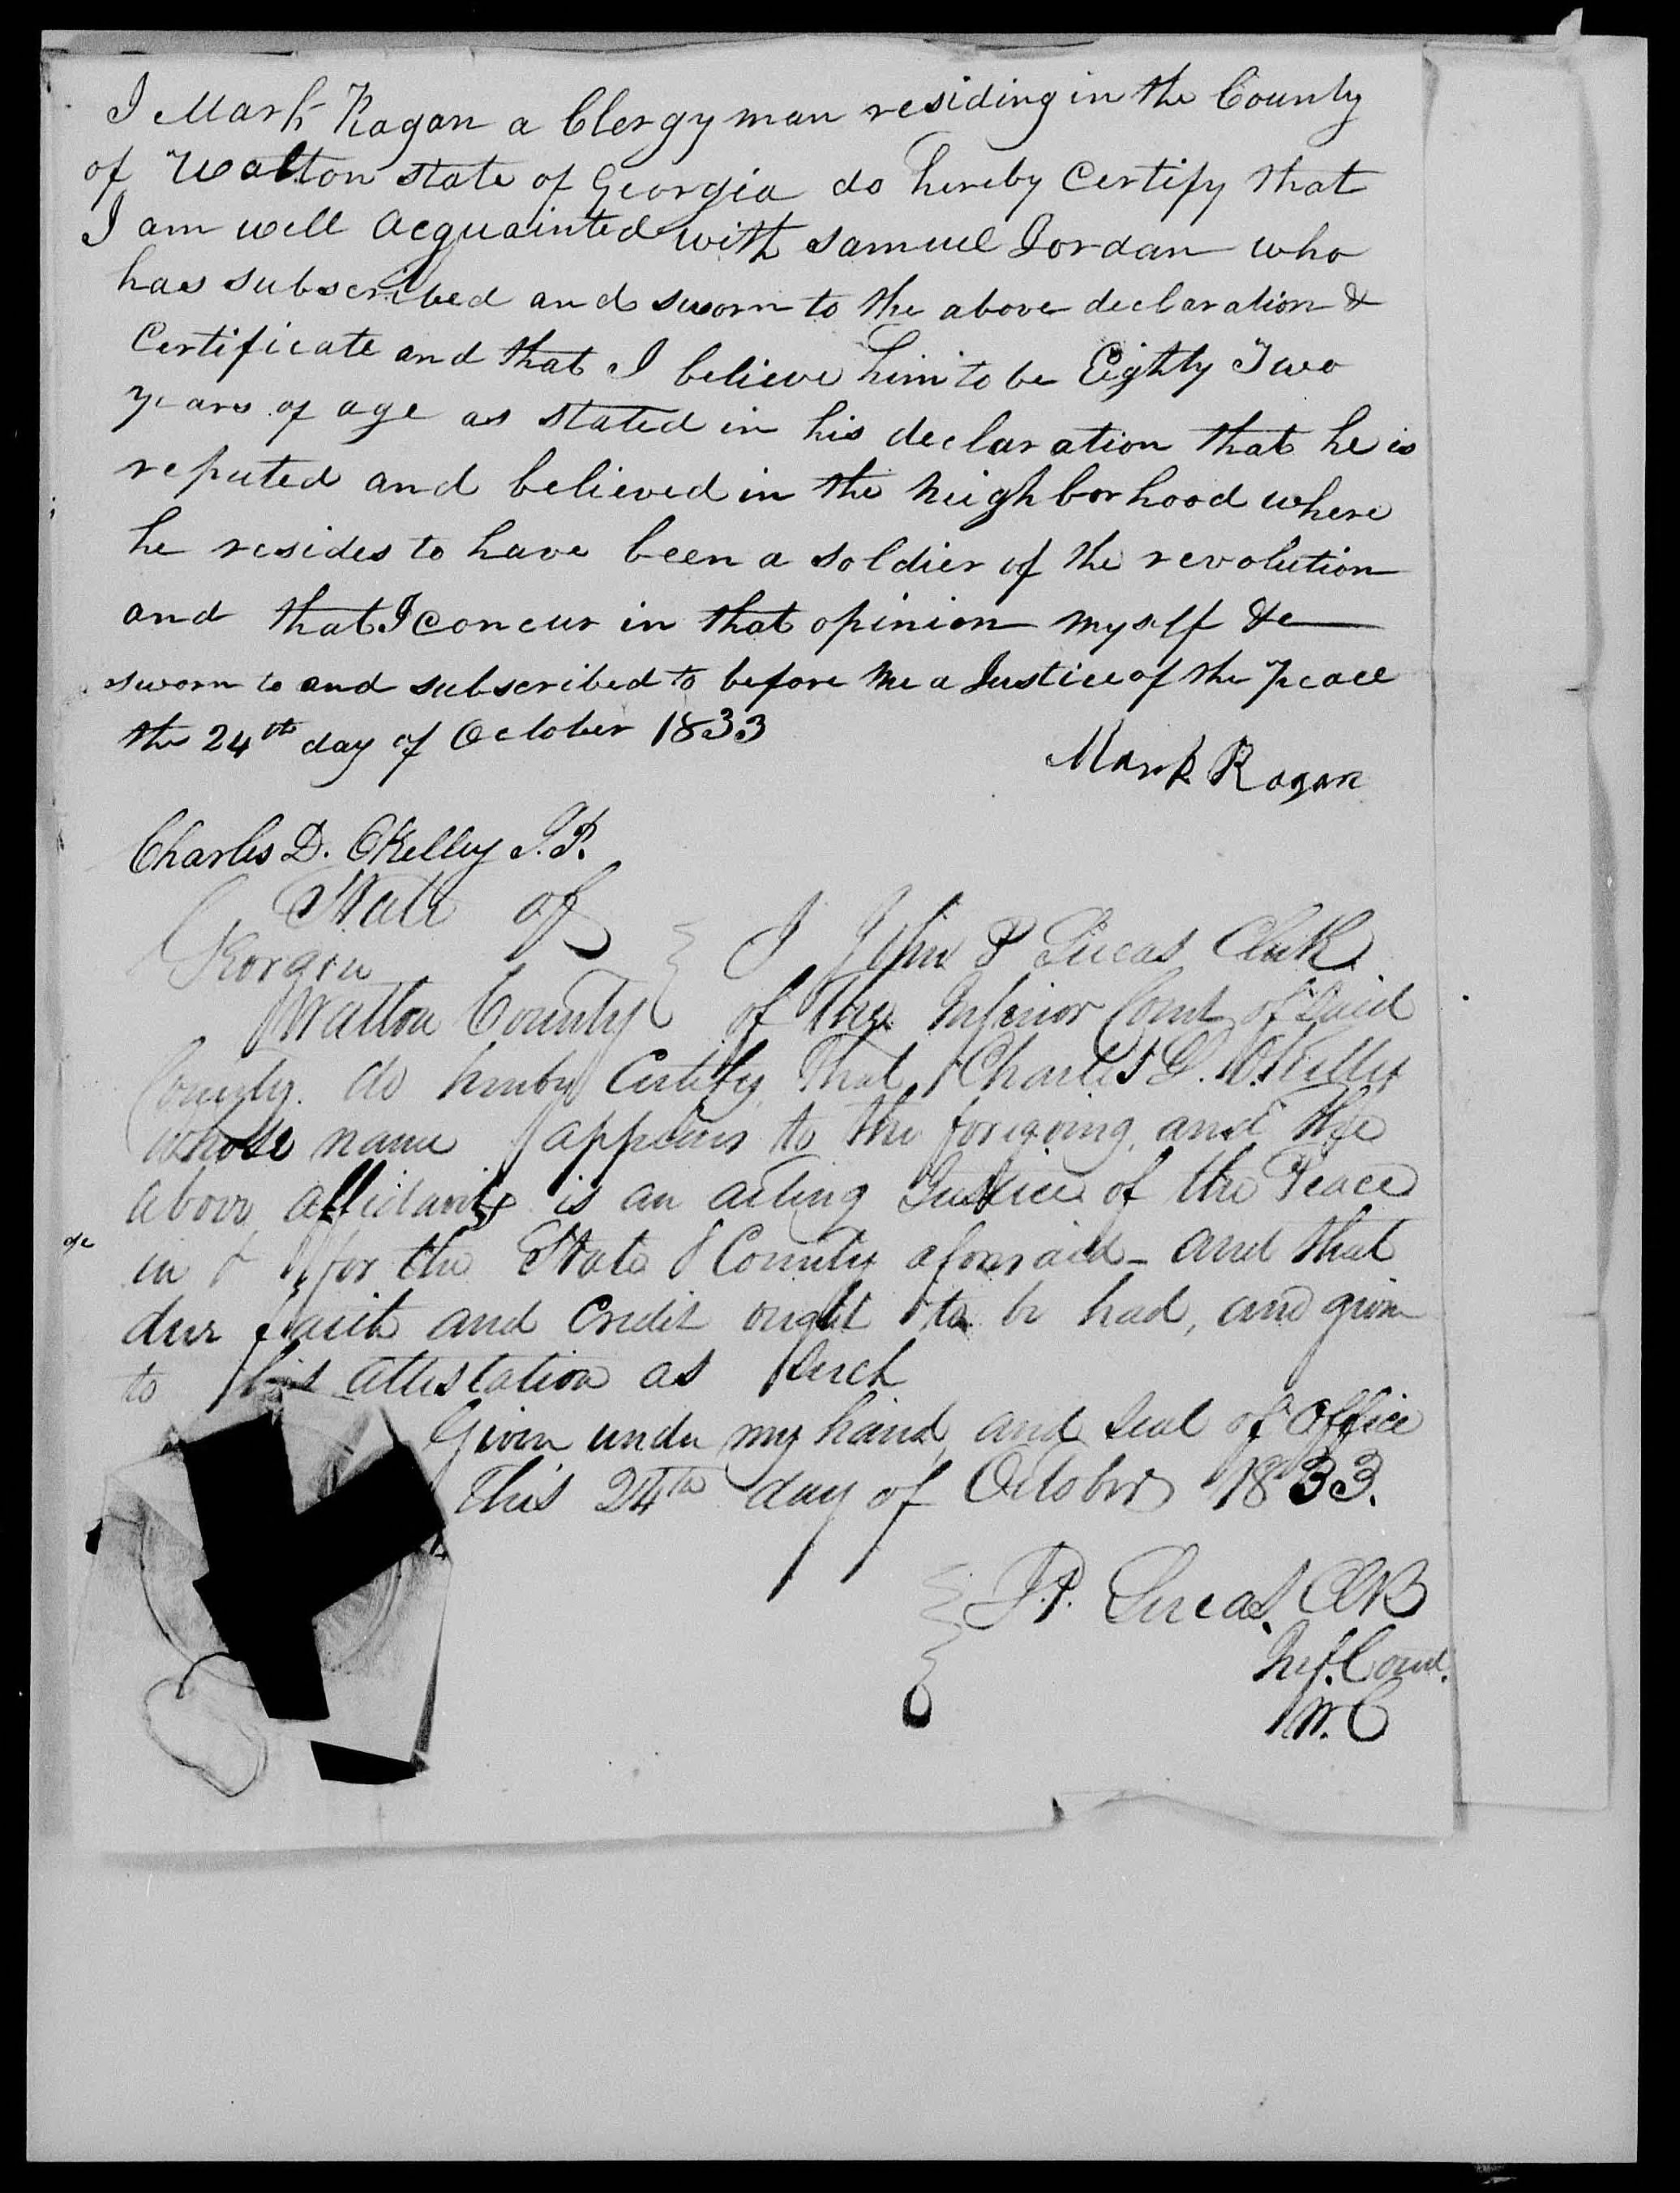 I Mark Ragan a Clergyman residing in the County
of Walton state of Georgia do hereby Certify that
I am well acquainted with Samuel Jordan who
has subscribed and sworn to the above declaration &
Certificate and that I believe him to be Eighty Two
years of age as stated in his declaration that he is
reputed and believed in the neighborhood where
he resides to have been a soldier of the revolution
and that I concur in that opinion myself &c
sworn to and subscribed to before me a Justice of the Peace
the 24th day of October 1833
Mark Ragan
Charles D. OKelley J.P.
State of
Georgia
I John P Lucas Clerk
Walton County of the Inferior Court of Said
County do hereby Certify that Charles D. OKelley
whose name appears to the foregoing and the
above affidavits is an acting Justice of the Peace
in & for the State & County aforesaid - and that
due faith and Credit ought to be had, and given
to his attestation as such
Given under my hand and seal of office
This 24th day of October 1833.
J.P. Lucas, Clk
Inf. Court.
W.C